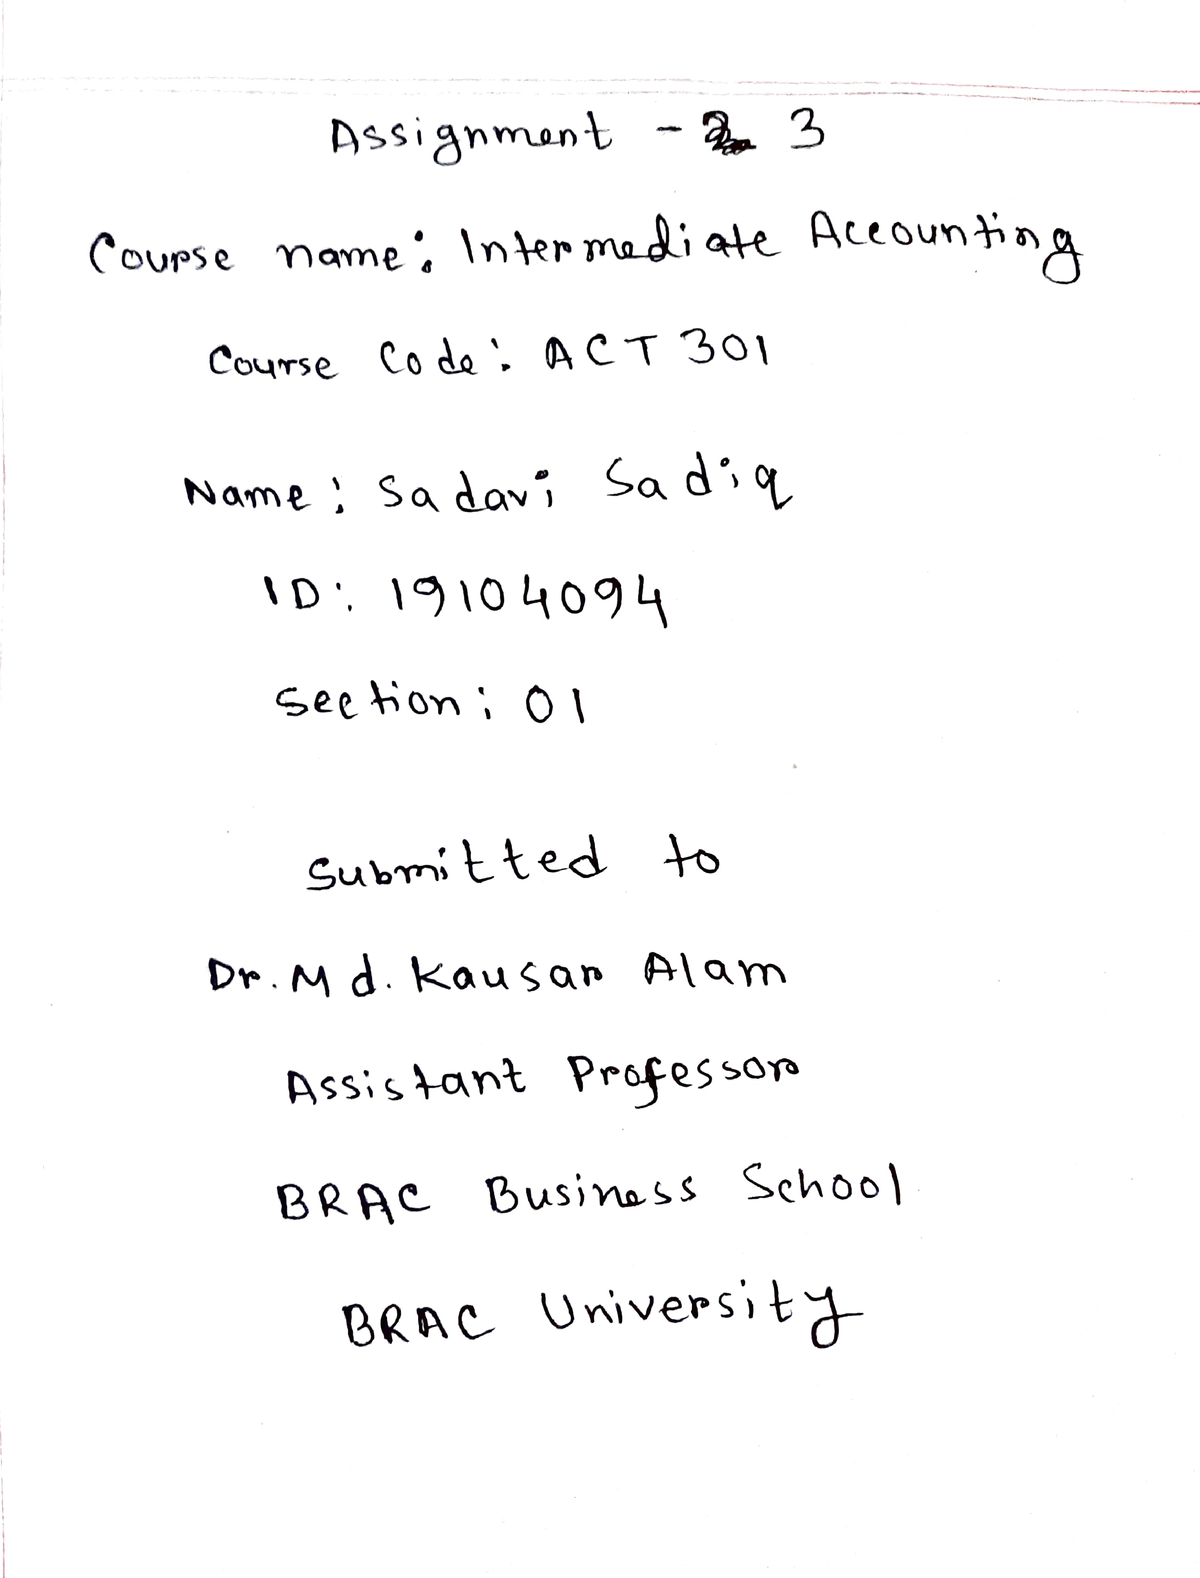 Assignment - 3
Course name: Intermediate Accounting
Course Code: ACT 301
Name: Sadavi Sadiq
ID: 19104094
Section: 01
Submitted to
Dr. Md. Kausar Alam
Assistant Professor
BRAC Business School
BRAC University